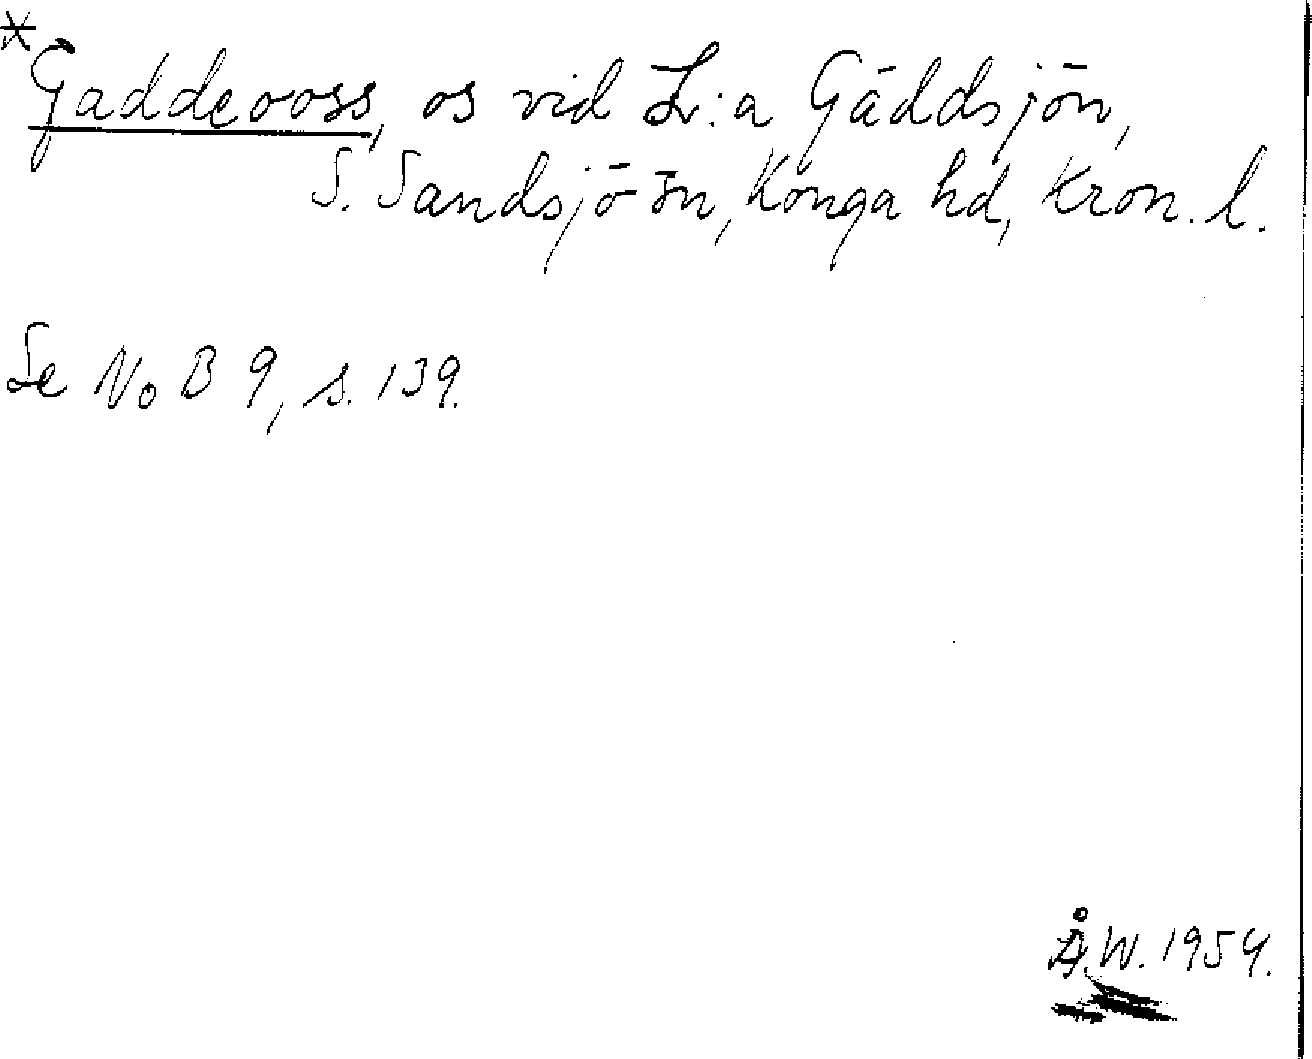 *Gaddeooss, os vid L:a Gäddsjön,
S. Sandsjö sn, Konga hd, Kron. l.
Se NoB 9, s. 139.
Å.W. 1954.